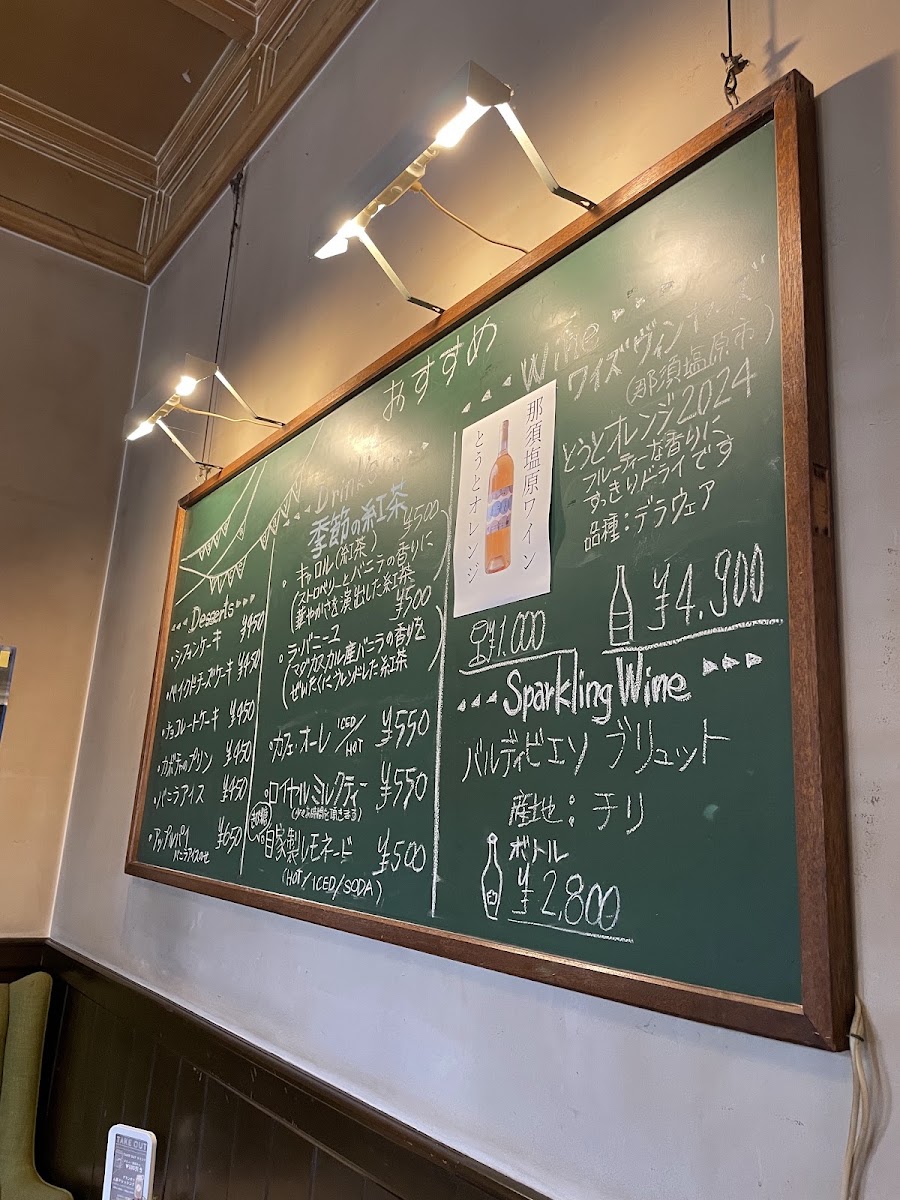 おすすめ
Desserts
・シフォンケーキ ¥450
・ベイクドチーズケーキ ¥450
・チョコレートケーキ ¥450
・カボチャのプリン ¥450
・バニラアイス ¥450
・アップルパイ ¥650
バニラアイスのせ
Drinks
季節の紅茶
・キャロル(紅茶) ¥500
(ストロベリーとバニラの香りに
華やかさを演出した紅茶)
・ラ・バニーユ ¥500
(マダガスカル産バニラの香りを
ぜいたくにブレンドした紅茶)
・カフェ・オーレ ICED/HOT ¥550
・ロイヤルミルクティー ¥550
(少々お時間を頂きます)
自家製レモネード ¥500
(HOT/ICED/SODA)
Wine
ワイズヴィンヤーズ
(那須塩原市)
とうとオレンジ2024
フルーティーな香りに
すっきりドライです
品種:デラウェア
那須塩原ワイン
とうとオレンジ
¥1,000
¥4,900
Sparkling Wine
バルディビエソ ブリュット
産地:チリ
ボトル
¥2,800
TAKE OUT